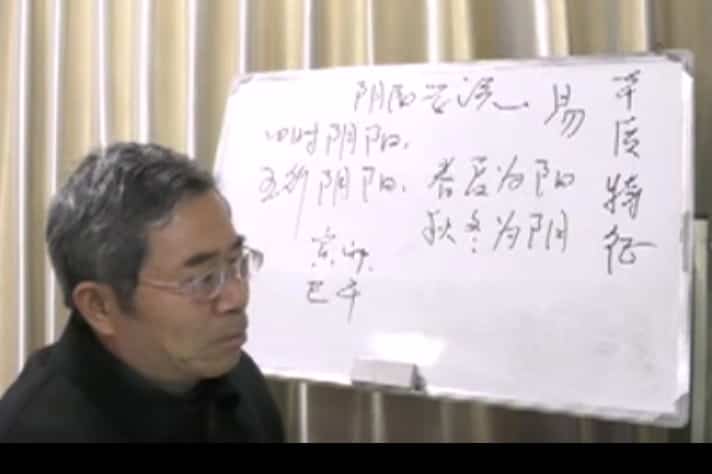 阴阳学说、易
四时阴阳.
五行阴阳. 春夏为阳
秋冬为阴
寅卯
巳午
本质特征